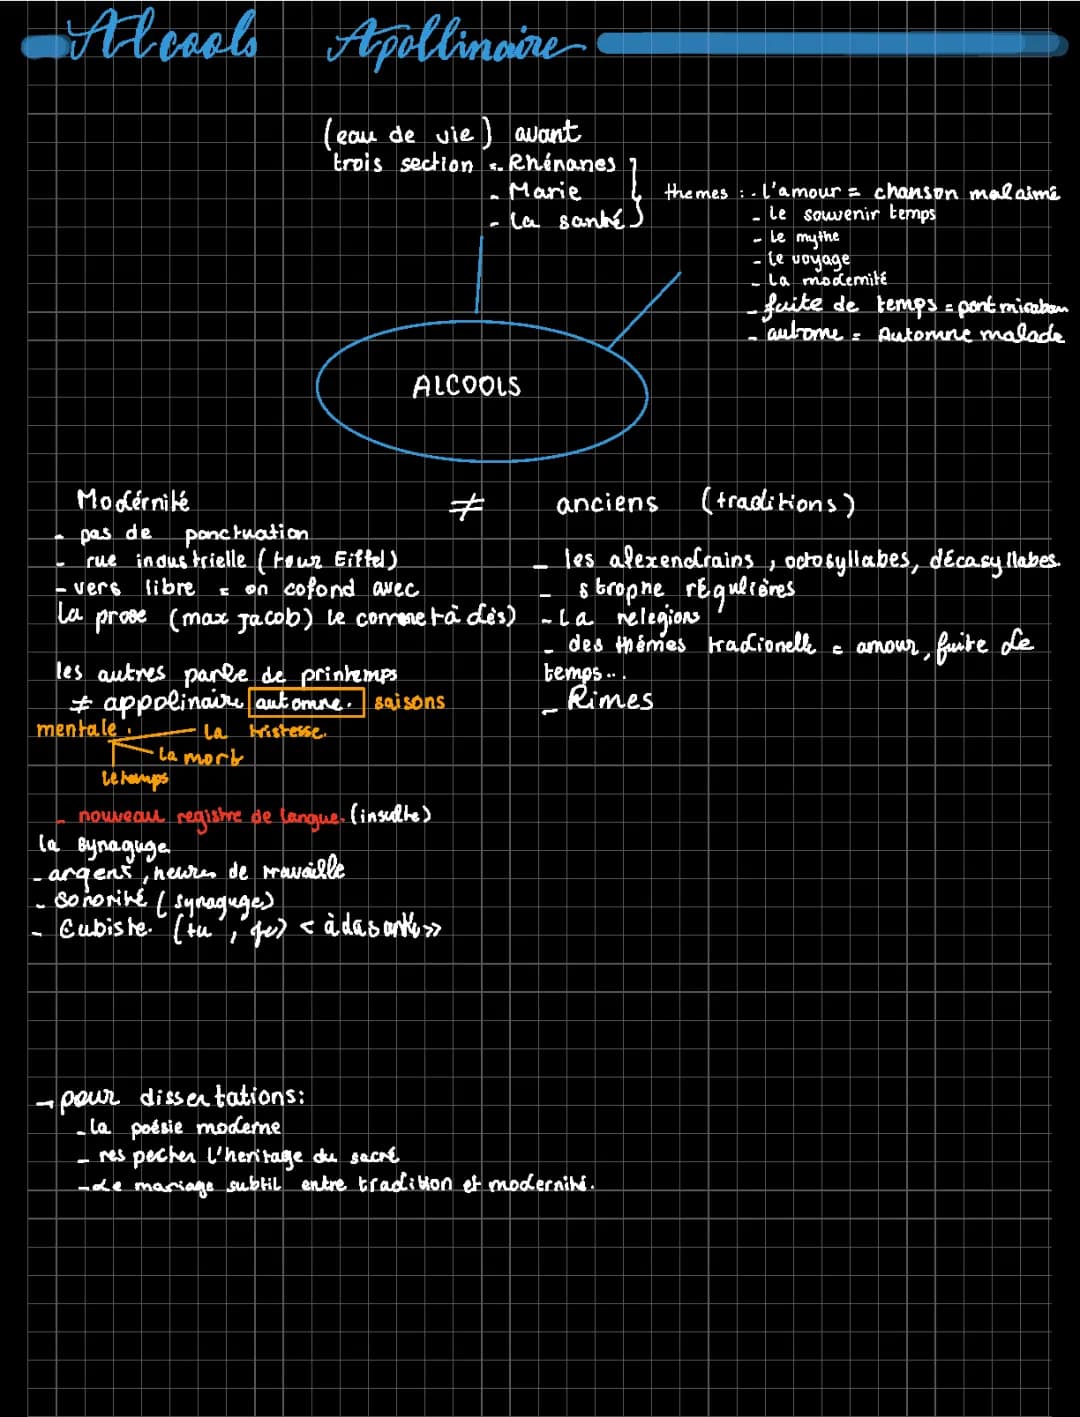 Alcools Apollinaire
(eau de vie) avant
trois section - Rhénanes
- Marie
- La santé
themes : - L'amour = chanson mal aimé
- Le souvenir temps
- Le mythe
- Le voyage
- La modernité
- fuite de temps = pont mirabau
- autome = Automne malade
ALCOOLS
Modérnité ≠ anciens (traditions)
- pas de ponctuation
- rue industrielle (tour Eiffel)
- vers libre = on cofond avec
la prose (max Jacob) le cornet à dès)
- les alexendrains, octosyllabes, décasyllabes.
- strophe régulières
- La relegions
- des thémes tradionelle = amour, fuite de
temps...
- Rimes
les autres parle de printemps
≠ appolinaire automne. saisons
mentale. - La tristesse.
- La mort
le temps
- nouveau registre de langue. (insulte)
la synaguge
- argent, heures de travaille
- sonorité (synaguge)
- Cubiste. (tu, je)
→ pour dissertations:
- La poésie moderne
- respecter l'heritage du sacré
- Le mariage subtil entre tradition et modernité.